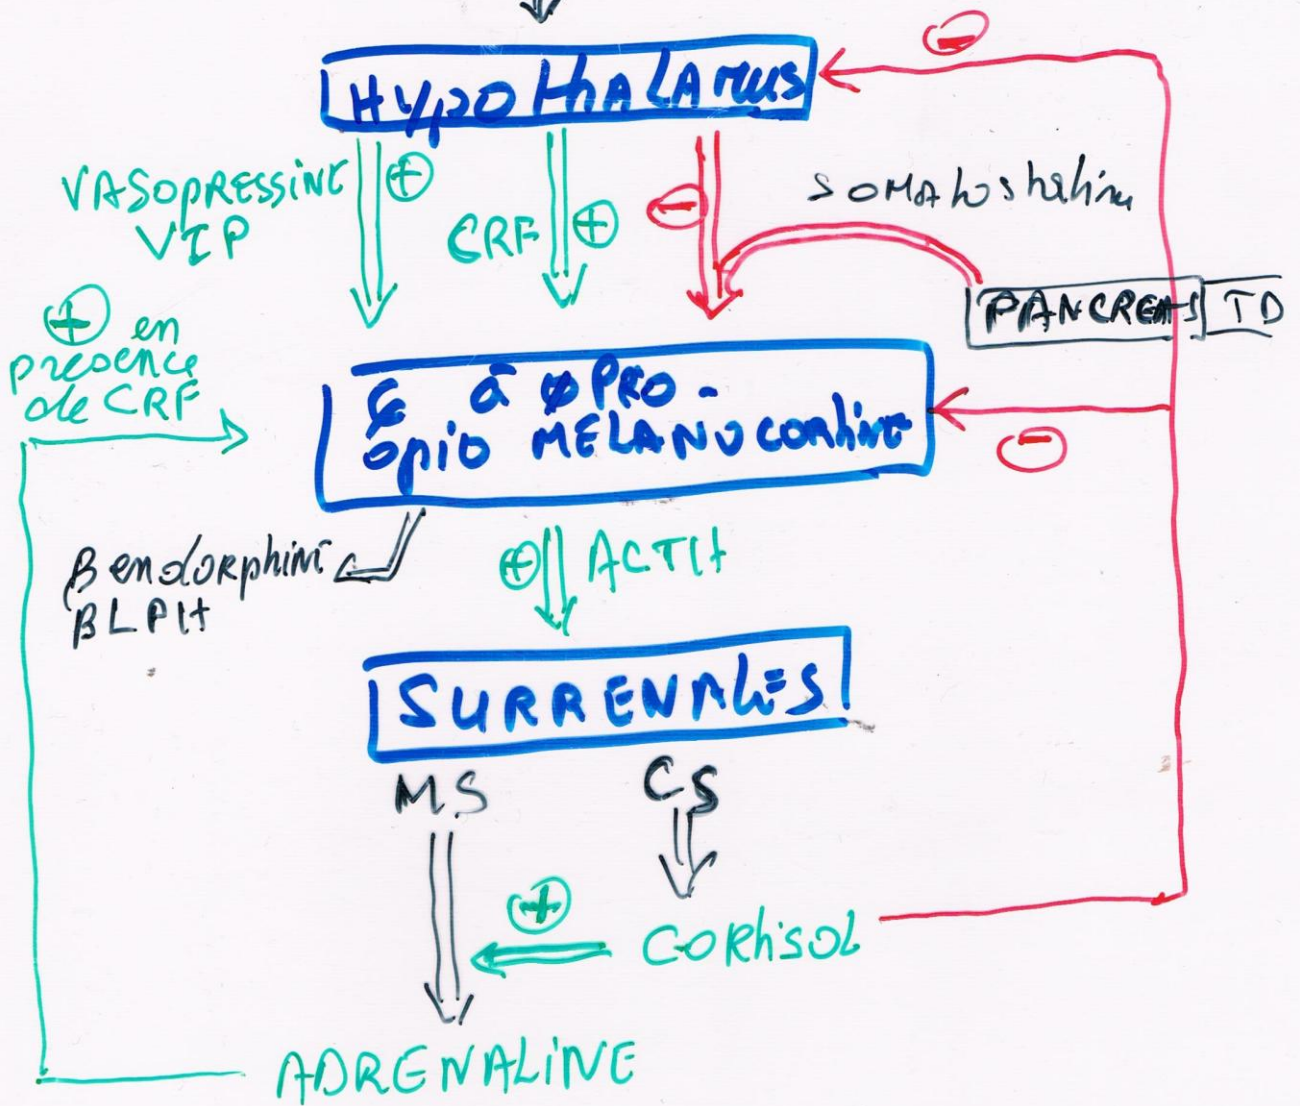 ⊖
HypothALAMUS
VASOPRESSINE
VIP
⊕
CRF
⊕
⊖
SOMAtostatine
PANCREAS TD
⊕ en
présence
de CRF
à PRO-
opio MELANOCORtine
⊖
β endorphine
βLPH
⊕
ACTH
SURRENALES
MS
CS
⊕
CORtisol
ADRENALINE